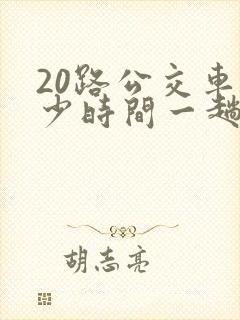 20路公交車
少時間一趟
胡志亮